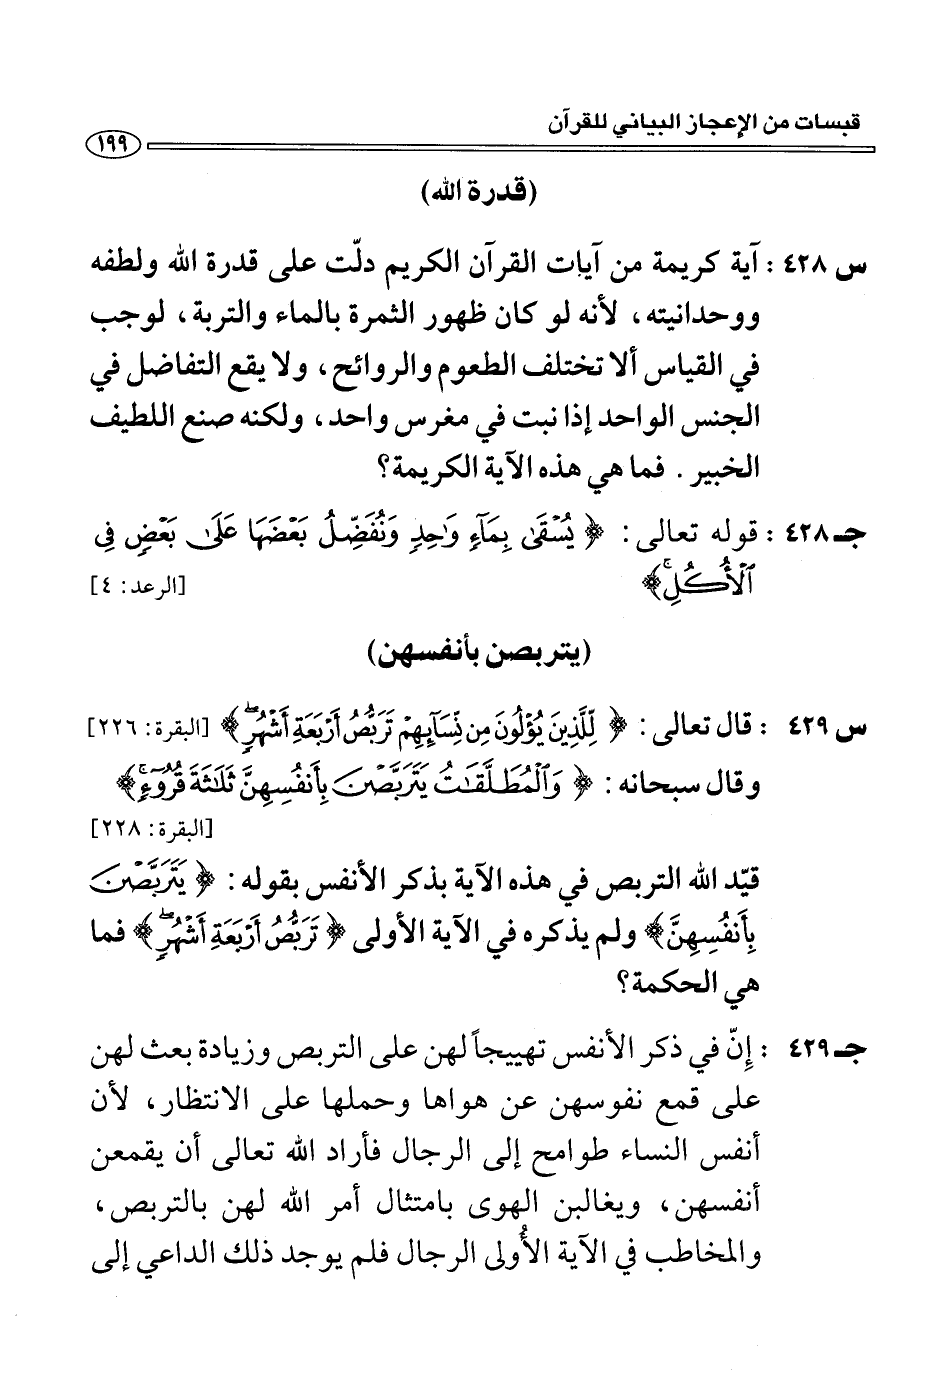 قبسات من الإعجاز البياني للقرآن
١٩٩
(قدرة الله)
س ٤٢٨ : آية كريمة من آيات القرآن الكريم دلّت على قدرة الله ولطفه
ووحدانيته، لأنه لو كان ظهور الثمرة بالماء والتربة، لوجب
في القياس ألا تختلف الطعوم والروائح، ولا يقع التفاضل في
الجنس الواحد إذا نبت في مغرس واحد، ولكنه صنع اللطيف
الخبير. فما هي هذه الآية الكريمة؟
جـ ٤٢٨ : قوله تعالى: ﴿ يُسْقَىٰ بِمَآءٍ وَٰحِدٍ وَنُفَضِّلُ بَعْضَهَا عَلَىٰ بَعْضٍ فِى
ٱلْأُكُلِ ۚ﴾ [الرعد: ٤]
(يتربصن بأنفسهن)
س ٤٢٩ : قال تعالى: ﴿ لِّلَّذِينَ يُؤْلُونَ مِن نِّسَآئِهِمْ تَرَبُّصُ أَرْبَعَةِ أَشْهُرٍ ۖ﴾ [البقرة: ٢٢٦]
وقال سبحانه: ﴿ وَٱلْمُطَلَّقَٰتُ يَتَرَبَّصْنَ بِأَنفُسِهِنَّ ثَلَٰثَةَ قُرُوٓءٍ ۚ﴾
[البقرة: ٢٢٨]
قيّد الله التربص في هذه الآية بذكر الأنفس بقوله: ﴿ يَتَرَبَّصْنَ
بِأَنفُسِهِنَّ﴾ ولم يذكره في الآية الأولى ﴿ تَرَبُّصُ أَرْبَعَةِ أَشْهُرٍ ۖ﴾ فما
هي الحكمة؟
جـ ٤٢٩ : إنّ في ذكر الأنفس تهييجاً لهن على التربص وزيادة بعث لهن
على قمع نفوسهن عن هواها وحملها على الانتظار، لأن
أنفس النساء طوامح إلى الرجال فأراد الله تعالى أن يقمعن
أنفسهن، ويغالبن الهوى بامتثال أمر الله لهن بالتربص،
والمخاطب في الآية الأُولى الرجال فلم يوجد ذلك الداعي إلى